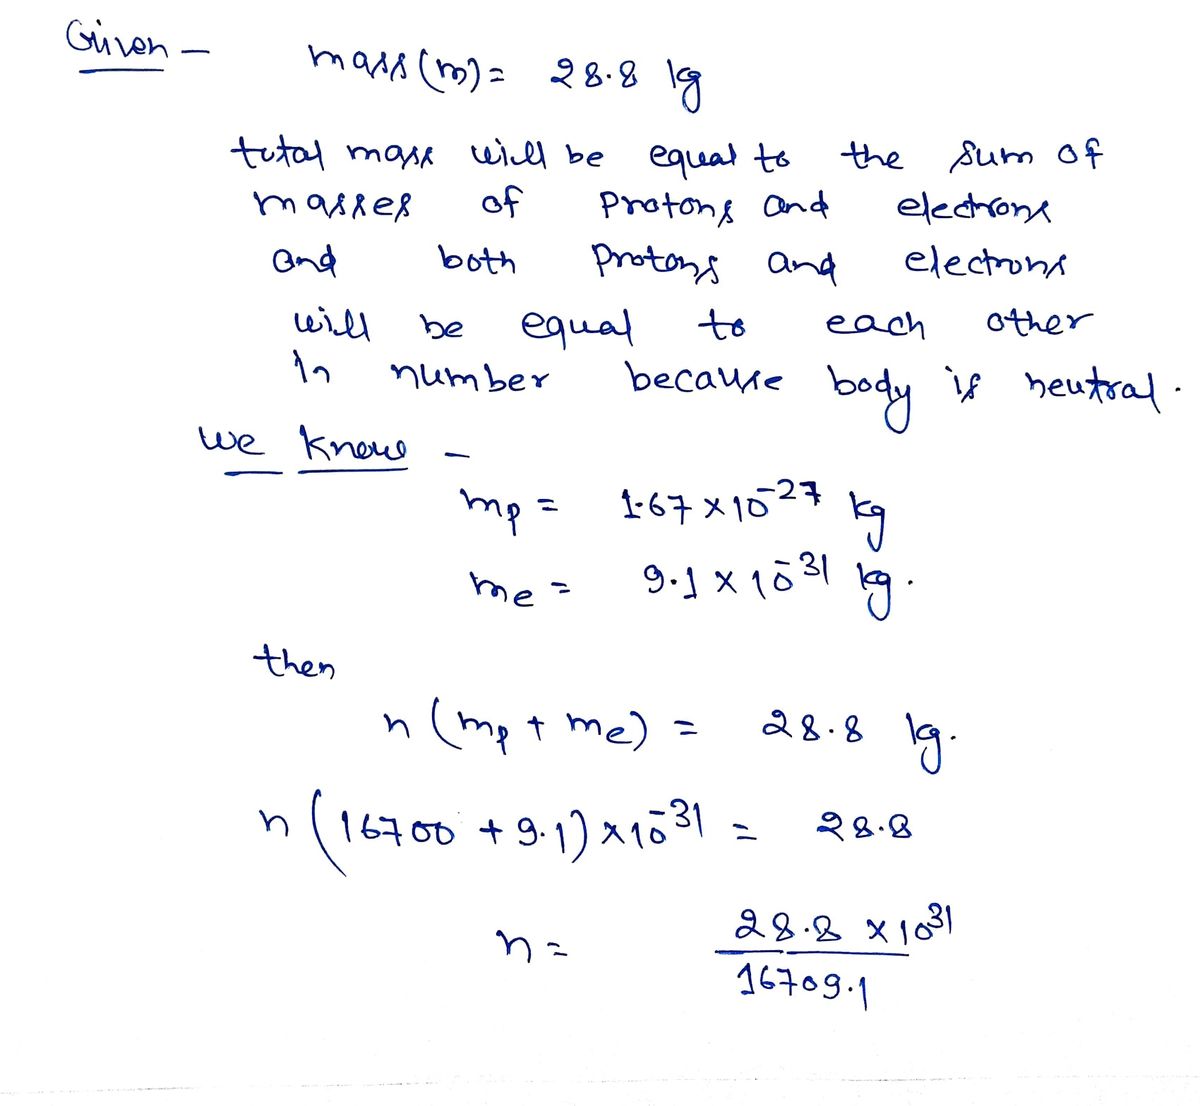 Given -
mass (m) = 28.8 kg
total mass will be equal to the sum of
masses of Protons and electrons
and both Protons and electrons
will be equal to each other
In number because body is neutral.
we know -
mp = 1.67 × 10^-27 kg
me = 9.1 × 10^-31 kg.
then
n (mp + me) = 28.8 kg.
n (16700 + 9.1) × 10^-31 = 28.8
n = 28.8 × 10^31
16709.1